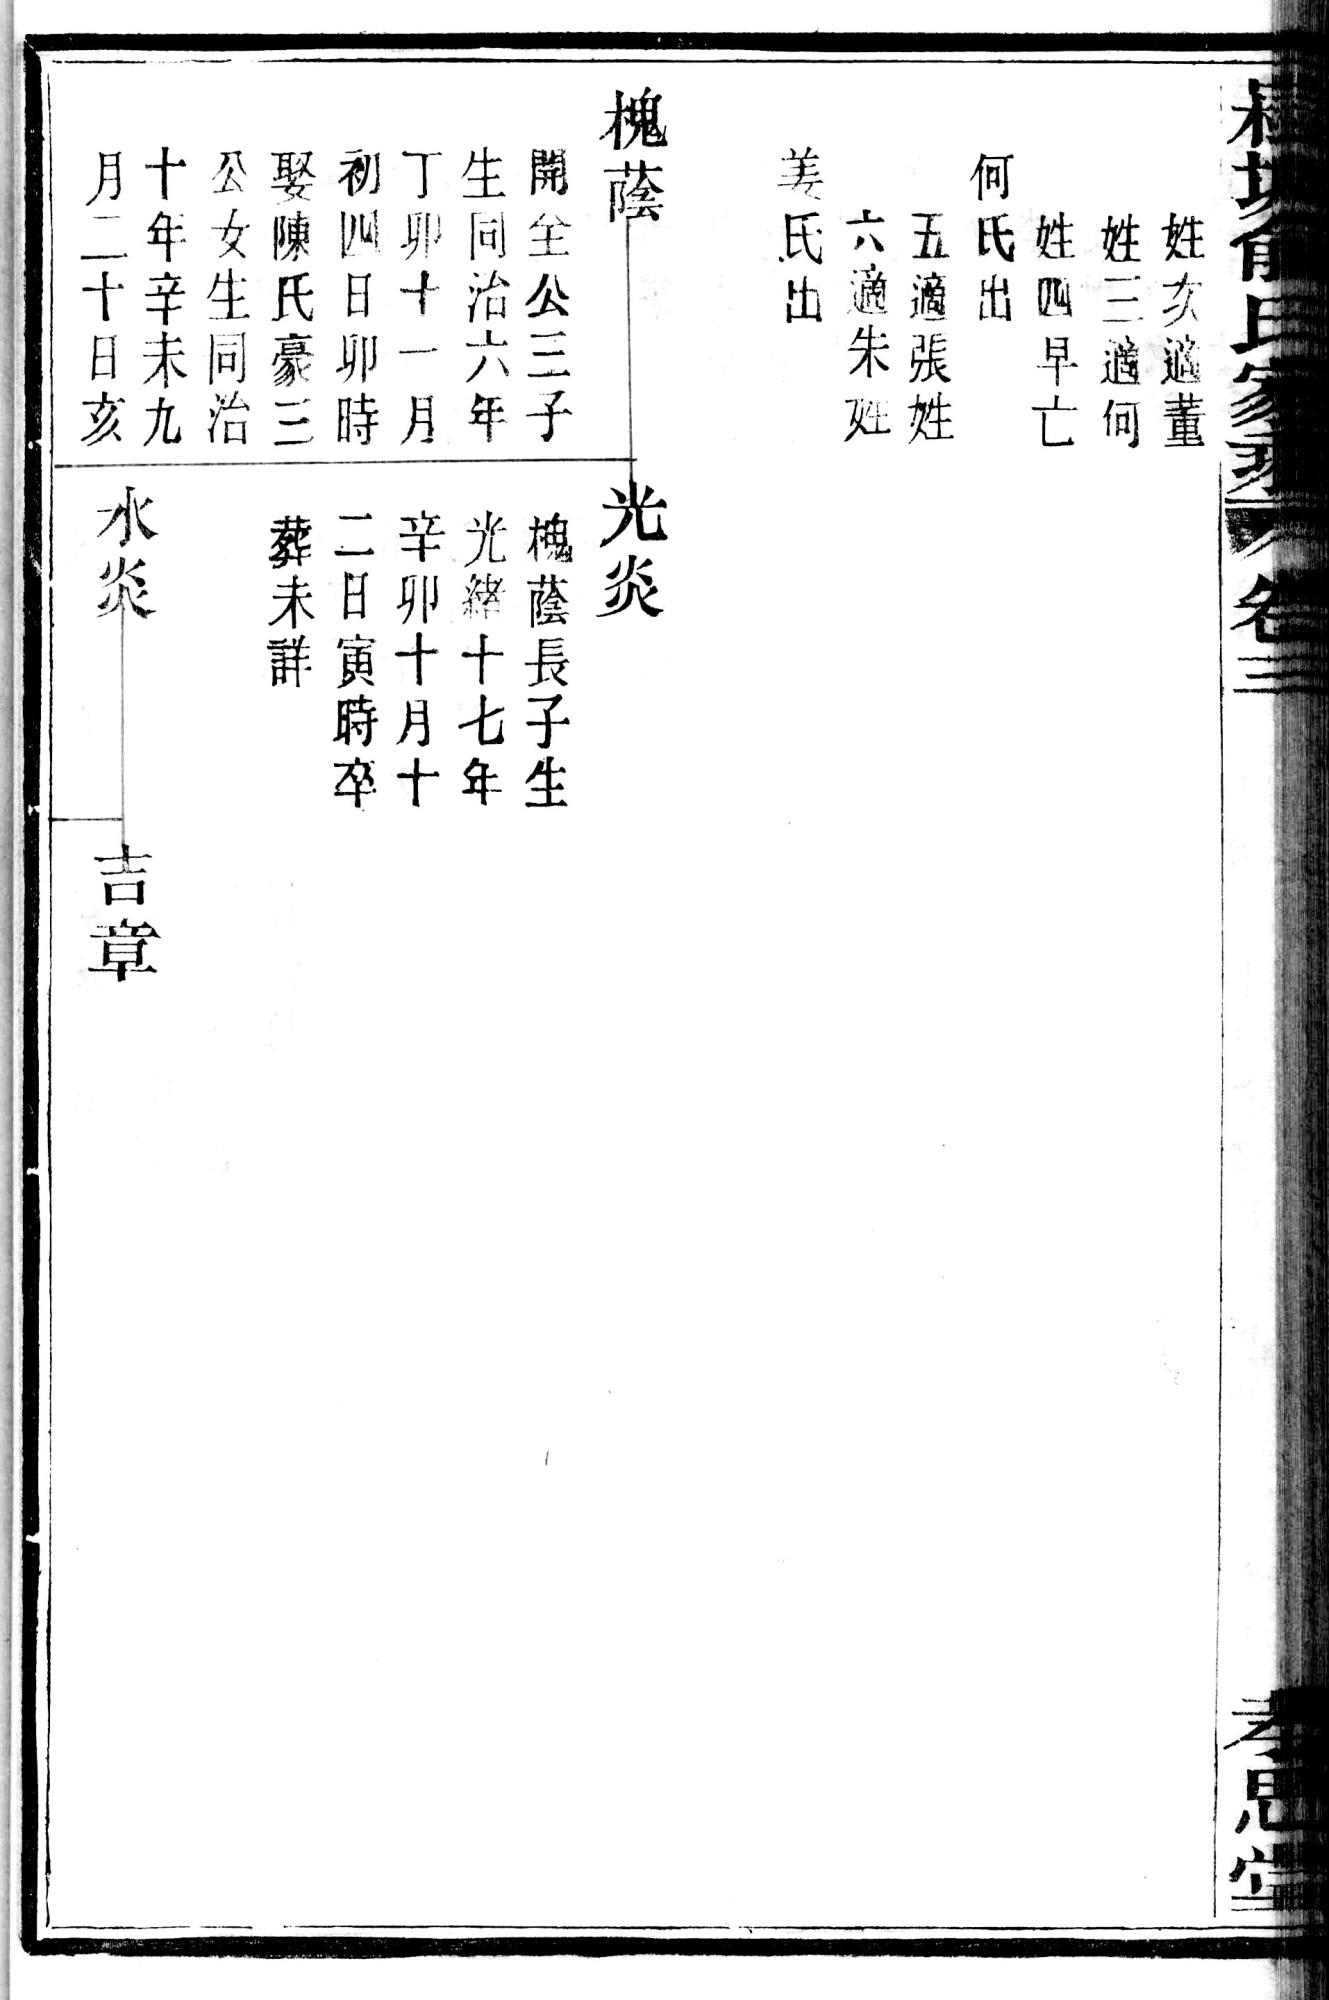 俞氏家乘
卷三
孝思堂
姓次適董
姓三適何
姓四早亡
何氏出
五適張姓
六適朱姓
姜氏出
槐蔭
開全公三子
生同治六年
丁卯十一月
初四日卯時
娶陳氏豪三
公女生同治
十年辛未九
月二十日亥
光炎
槐蔭長子生
光緒十七年
辛卯十月十
二日寅時卒
葬未詳
水炎
吉章